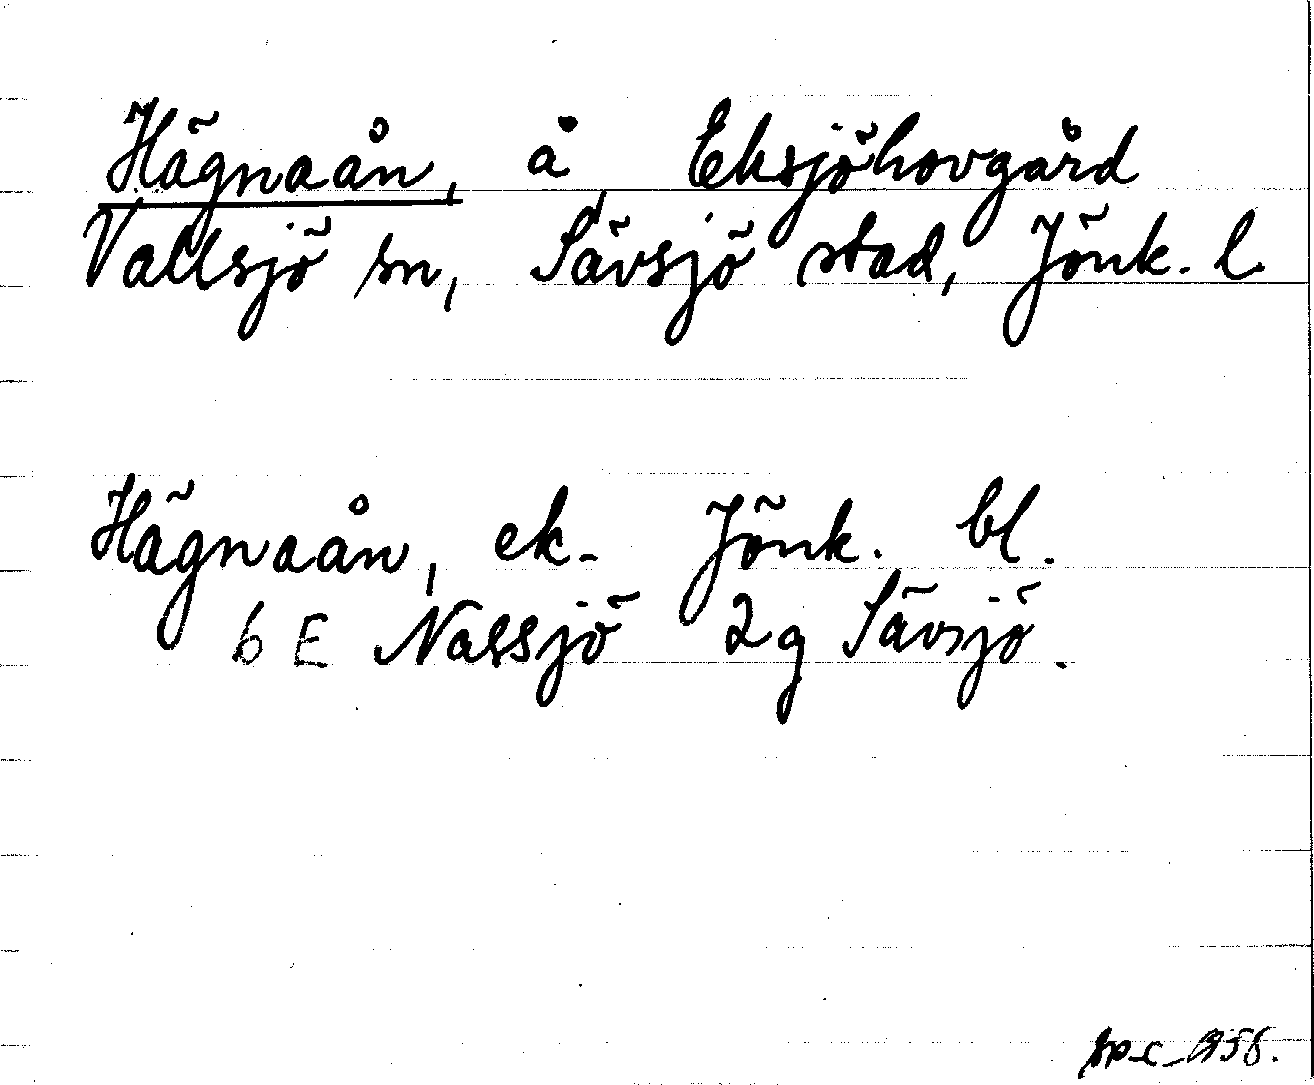 Hägnaån, å, Eksjöhovgård
Vallsjö sn, Sävsjö stad, Jönk. l.
Hägnaån, ek. Jönk. bl.
6 E Nässjö 2g Sävsjö.
1958.